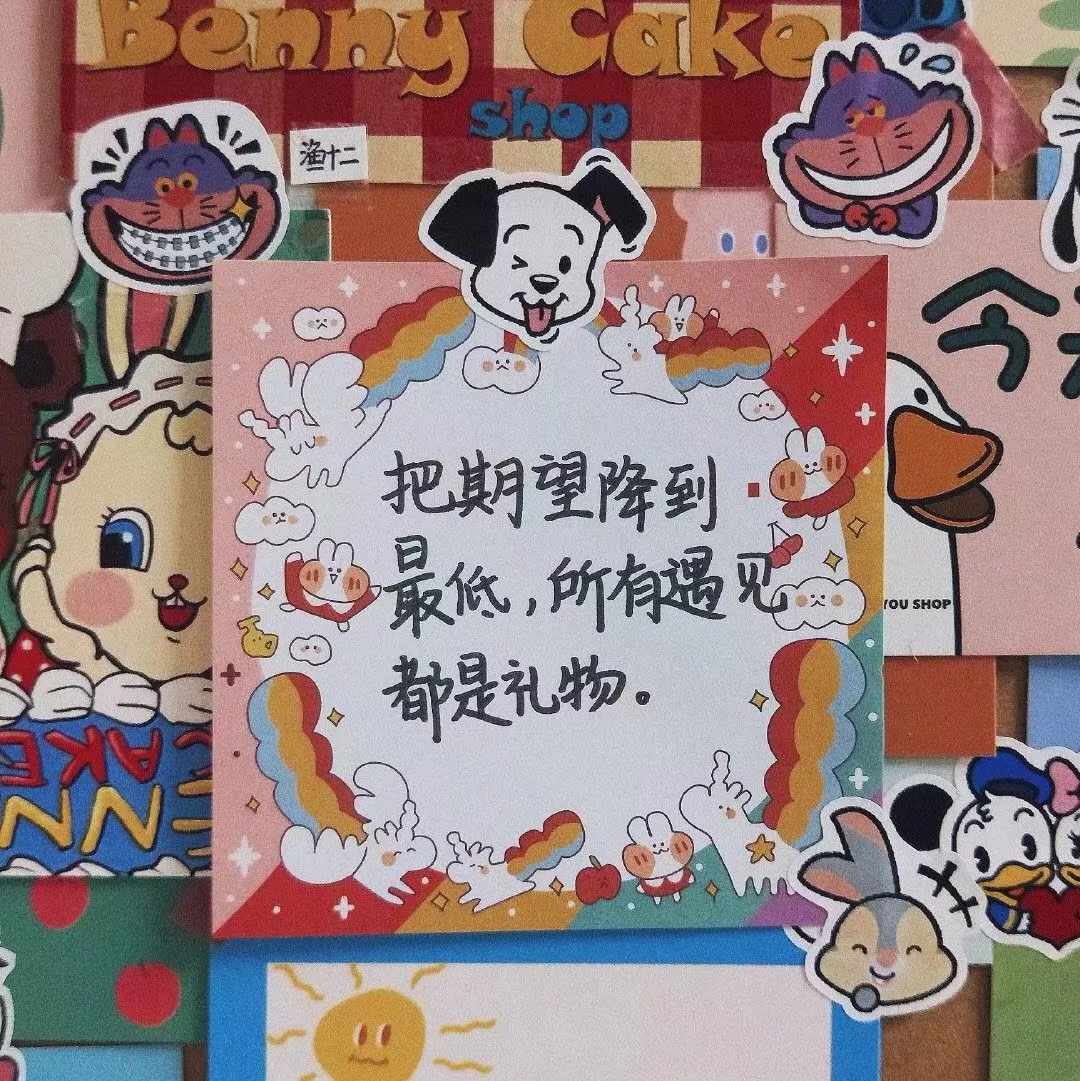 Benny Cake
shop
渔十二
今
把期望降到
最低，所有遇见
都是礼物。
YOU SHOP